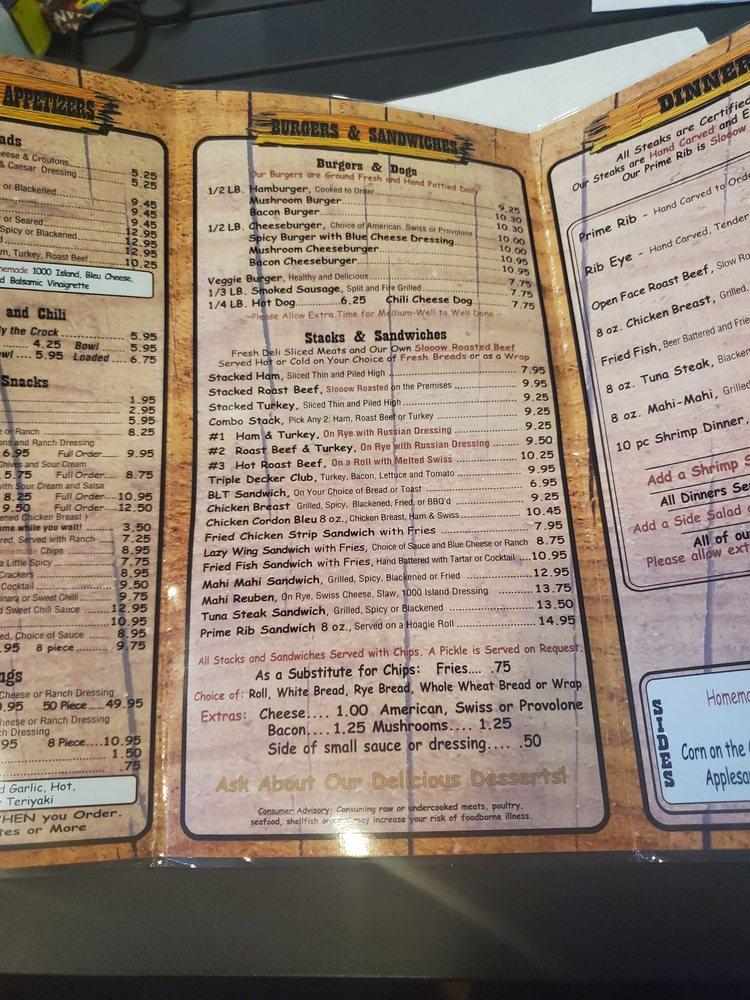 APPETIZERS
ads
eese & Croutons
& Caesar Dressing 5.25
5.25
or Blackened.
9.45
9.45
or Seared 9.45
Spicy or Blackened 12.95
12.95
m, Turkey, Roast Beef 12.95
10.25
memade 1000 Island, Bleu Cheese,
d Balsamic Vinaigrette
and Chili
By the Crock 5.95
4.25 Bowl 5.95
owl 5.95 Loaded 6.75
Snacks
1.95
2.95
5.95
e or Ranch 8.25
ons and Ranch Dressing
6.95 Full Order 9.95
Chives and Sour Cream
5.75 Full Order 8.75
with Sour Cream and Salsa
8.25 Full Order 10.95
9.50 Full Order 12.50
ened Chicken Breast )
me while you wait! 3.50
red, Served with Ranch 7.25
Homemade Chips 8.95
a Little Spicy 7.75
Crackers 8.95
Cocktail 9.50
inara or Sweet Chilli 9.75
d Sweet Chili Sauce 12.95
10.95
ed, Choice of Sauce 8.95
.95 8 piece 9.75
ngs
Cheese or Ranch Dressing
0.95 50 Piece 49.95
Cheese or Ranch Dressing
ch Dressing
95 8 Piece 10.95
1.50
.75
d Garlic, Hot,
Teriyaki
WHEN you Order.
tes or More
BURGERS & SANDWICHES
Burgers & Dogs
Our Burgers are Ground Fresh and Hand Pattied Daily
1/2 LB. Hamburger, Cooked to Order 9.25
Mushroom Burger 10.30
Bacon Burger 10.30
1/2 LB. Cheeseburger, Choice of American, Swiss or Provolone 10.00
Spicy Burger with Blue Cheese Dressing 10.00
Mushroom Cheeseburger 10.95
Bacon Cheeseburger 10.95
Veggie Burger, Healthy and Delicious 7.75
1/3 LB. Smoked Sausage, Split and Fire Grilled 7.75
1/4 LB. Hot Dog 6.25 Chili Cheese Dog 7.75
~Please Allow Extra Time for Medium-Well to Well Done
Stacks & Sandwiches
Fresh Deli Sliced Meats and Our Own Slooow Roasted Beef
Served Hot or Cold on Your Choice of Fresh Breads or as a Wrap
Stacked Ham, Sliced Thin and Piled High 7.95
Stacked Roast Beef, Slooow Roasted on the Premises 9.95
Stacked Turkey, Sliced Thin and Piled High 9.25
Combo Stack, Pick Any 2: Ham, Roast Beef or Turkey 9.25
#1 Ham & Turkey, On Rye with Russian Dressing 9.25
#2 Roast Beef & Turkey, On Rye with Russian Dressing 9.50
#3 Hot Roast Beef, On a Roll with Melted Swiss 10.25
Triple Decker Club, Turkey, Bacon, Lettuce and Tomato 9.95
BLT Sandwich, On Your Choice of Bread or Toast 6.95
Chicken Breast Grilled, Spicy, Blackened, Fried, or BBQ'd 9.25
Chicken Cordon Bleu 8 oz., Chicken Breast, Ham & Swiss 10.45
Fried Chicken Strip Sandwich with Fries 7.95
Lazy Wing Sandwich with Fries, Choice of Sauce and Blue Cheese or Ranch 8.75
Fried Fish Sandwich with Fries, Hand Battered with Tartar or Cocktail 10.95
Mahi Mahi Sandwich, Grilled, Spicy, Blackened or Fried 12.95
Mahi Reuben, On Rye, Swiss Cheese, Slaw, 1000 Island Dressing 13.75
Tuna Steak Sandwich, Grilled, Spicy or Blackened 13.50
Prime Rib Sandwich 8 oz., Served on a Hoagie Roll 14.95
All Stacks and Sandwiches Served with Chips. A Pickle is Served on Request.
As a Substitute for Chips: Fries.... .75
Choice of: Roll, White Bread, Rye Bread, Whole Wheat Bread or Wrap
Extras: Cheese.... 1.00 American, Swiss or Provolone
Bacon.... 1.25 Mushrooms.... 1.25
Side of small sauce or dressing.... .50
Ask About Our Delicious Desserts!
Consumer Advisory: Consuming raw or undercooked meats, poultry,
seafood, shellfish or may increase your risk of foodborne illness.
DINNER
All Steaks are Certified
Our Steaks are Hand Carved and
Our Prime Rib is Slooow
Prime Rib - Hand Carved to Orde
Rib Eye - Hand Carved, Tender
Open Face Roast Beef, Slow Ro
8 oz. Chicken Breast, Grilled,
Fried Fish, Beer Battered and Frie
8 oz. Tuna Steak, Blacke
8 oz. Mahi-Mahi, Grilled
10 pc Shrimp Dinner,
Add a Shrimp S
All Dinners Ser
Add a Side Salad o
All of ou
Please allow ext
SIDES
Homema
Corn on the
Applesa